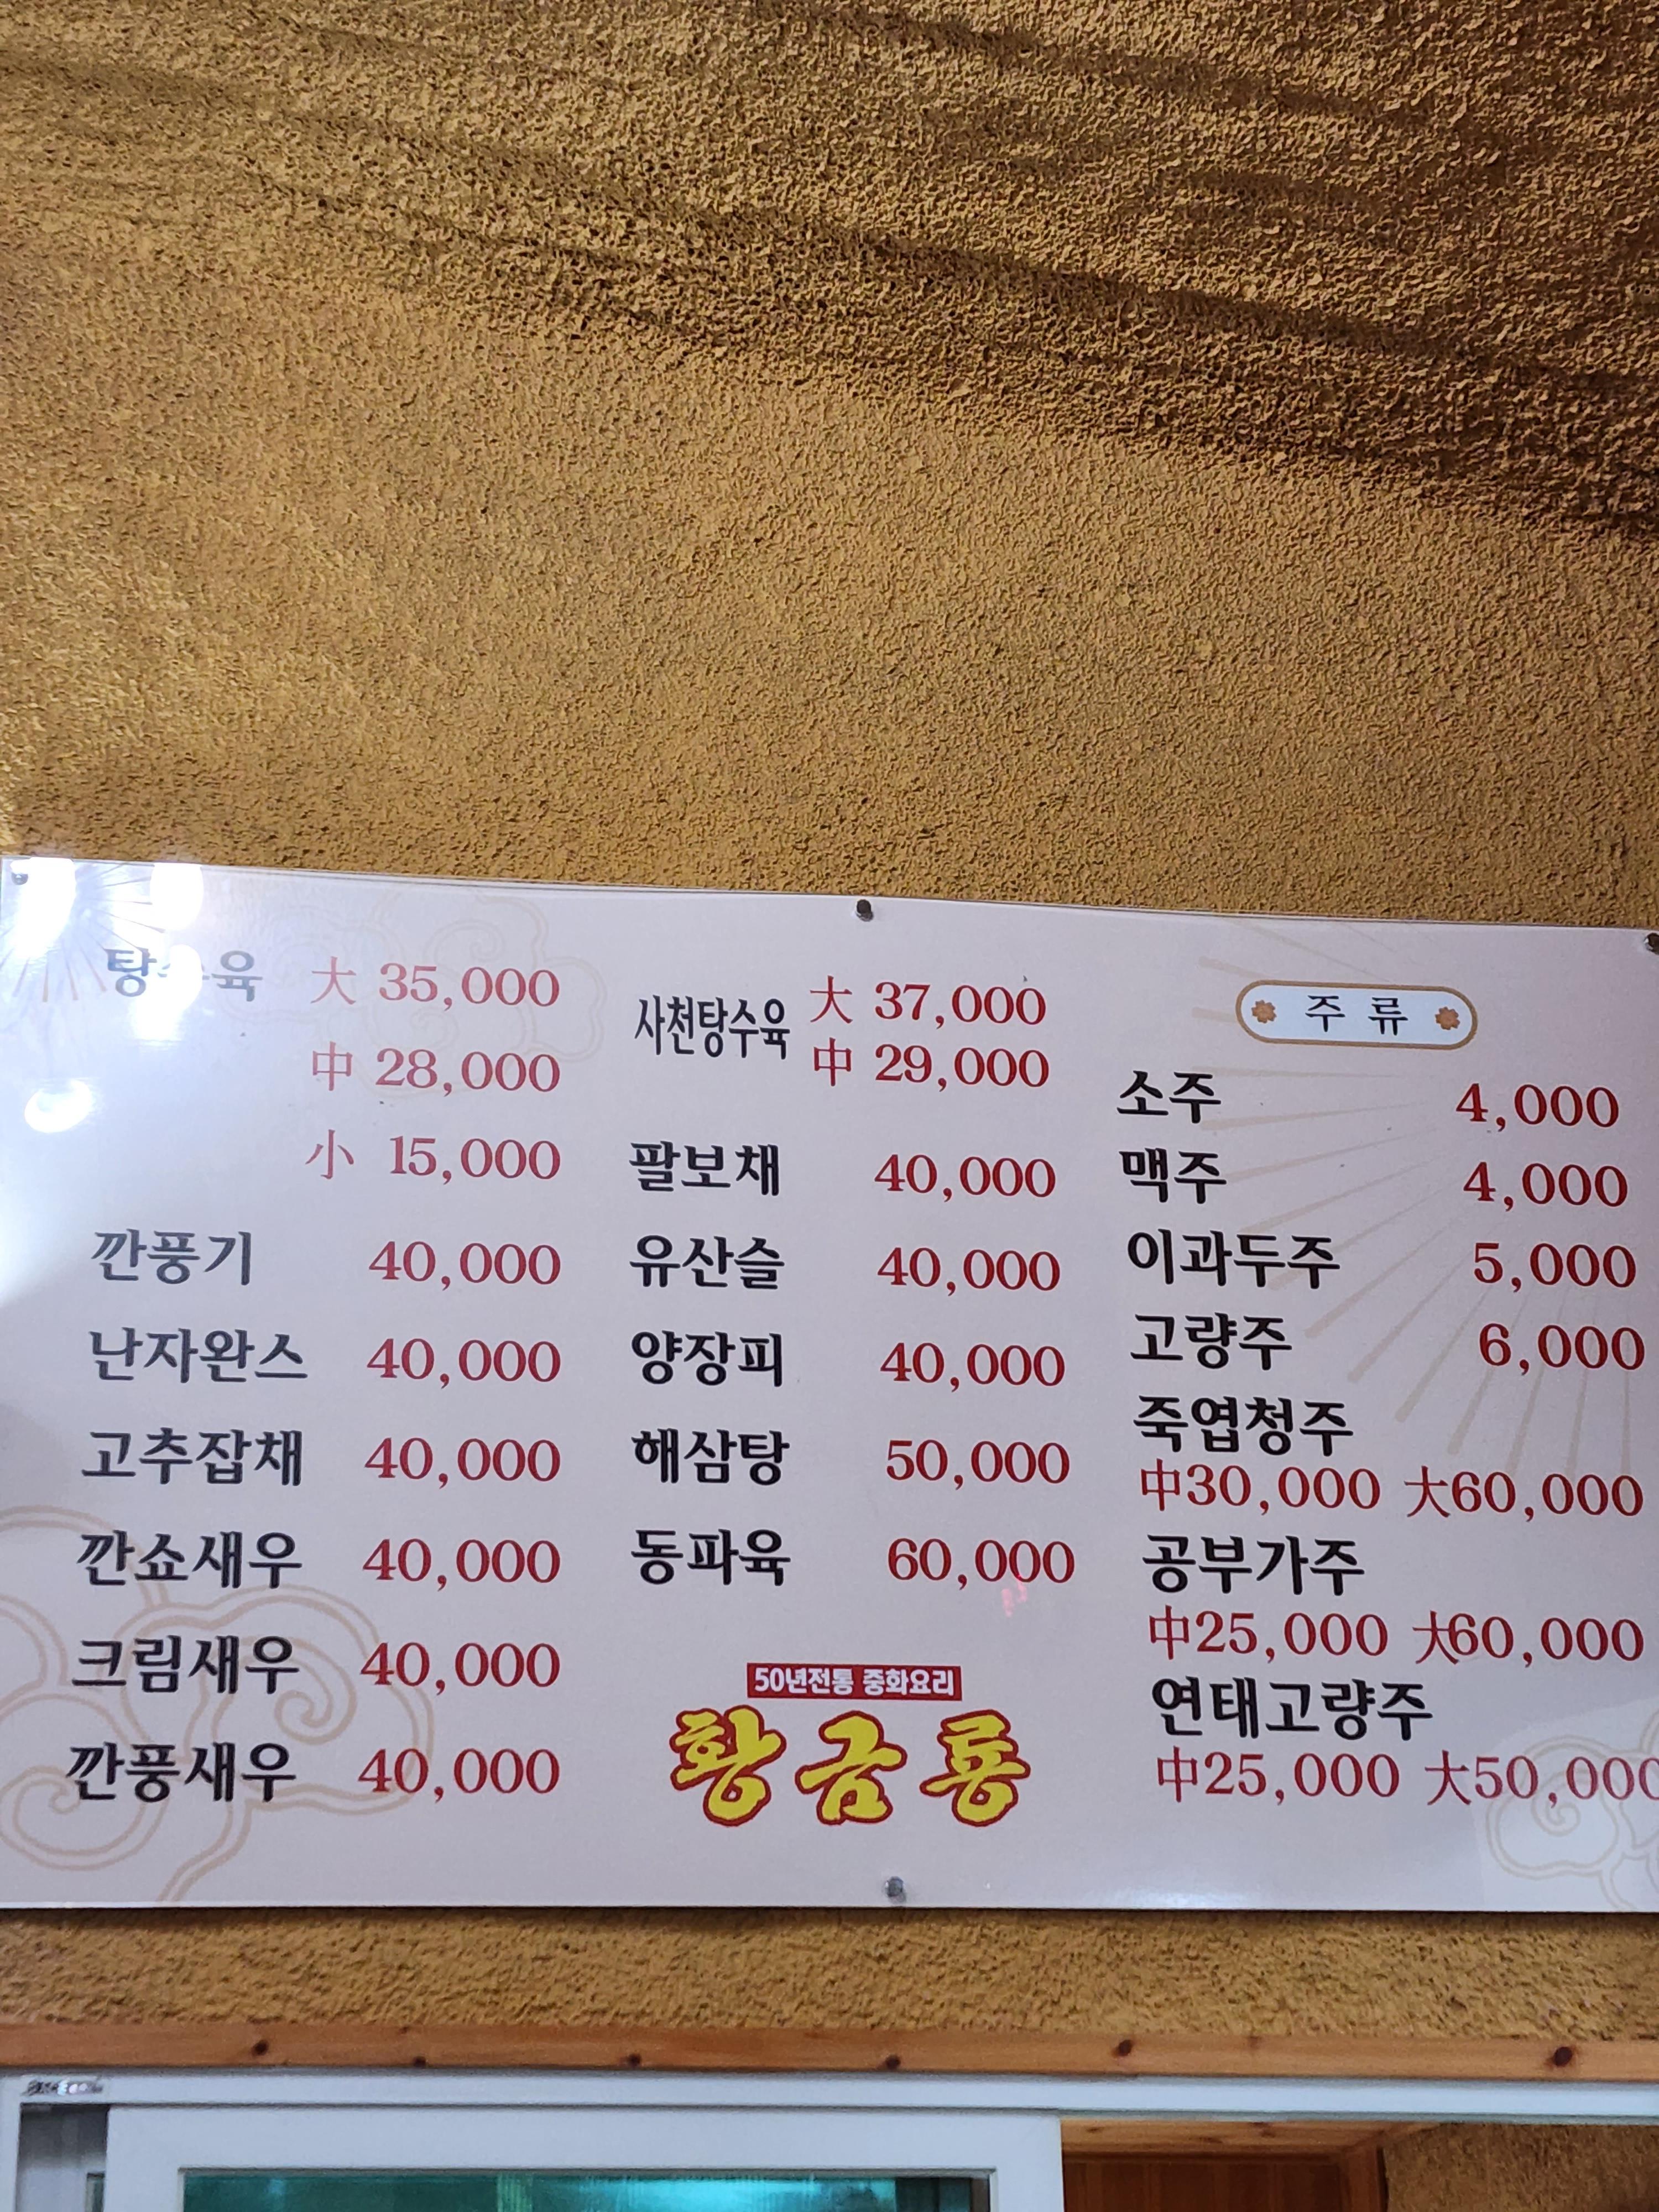 탕수육 大 35,000
中 28,000
小 15,000
깐풍기 40,000
난자완스 40,000
고추잡채 40,000
깐쇼새우 40,000
크림새우 40,000
깐풍새우 40,000
사천탕수육 大 37,000
中 29,000
팔보채 40,000
유산슬 40,000
양장피 40,000
해삼탕 50,000
동파육 60,000
50년전통 중화요리
황금룡
주류
소주 4,000
맥주 4,000
이과두주 5,000
고량주 6,000
죽엽청주
中30,000 大60,000
공부가주
中25,000 大60,000
연태고량주
中25,000 大50,000